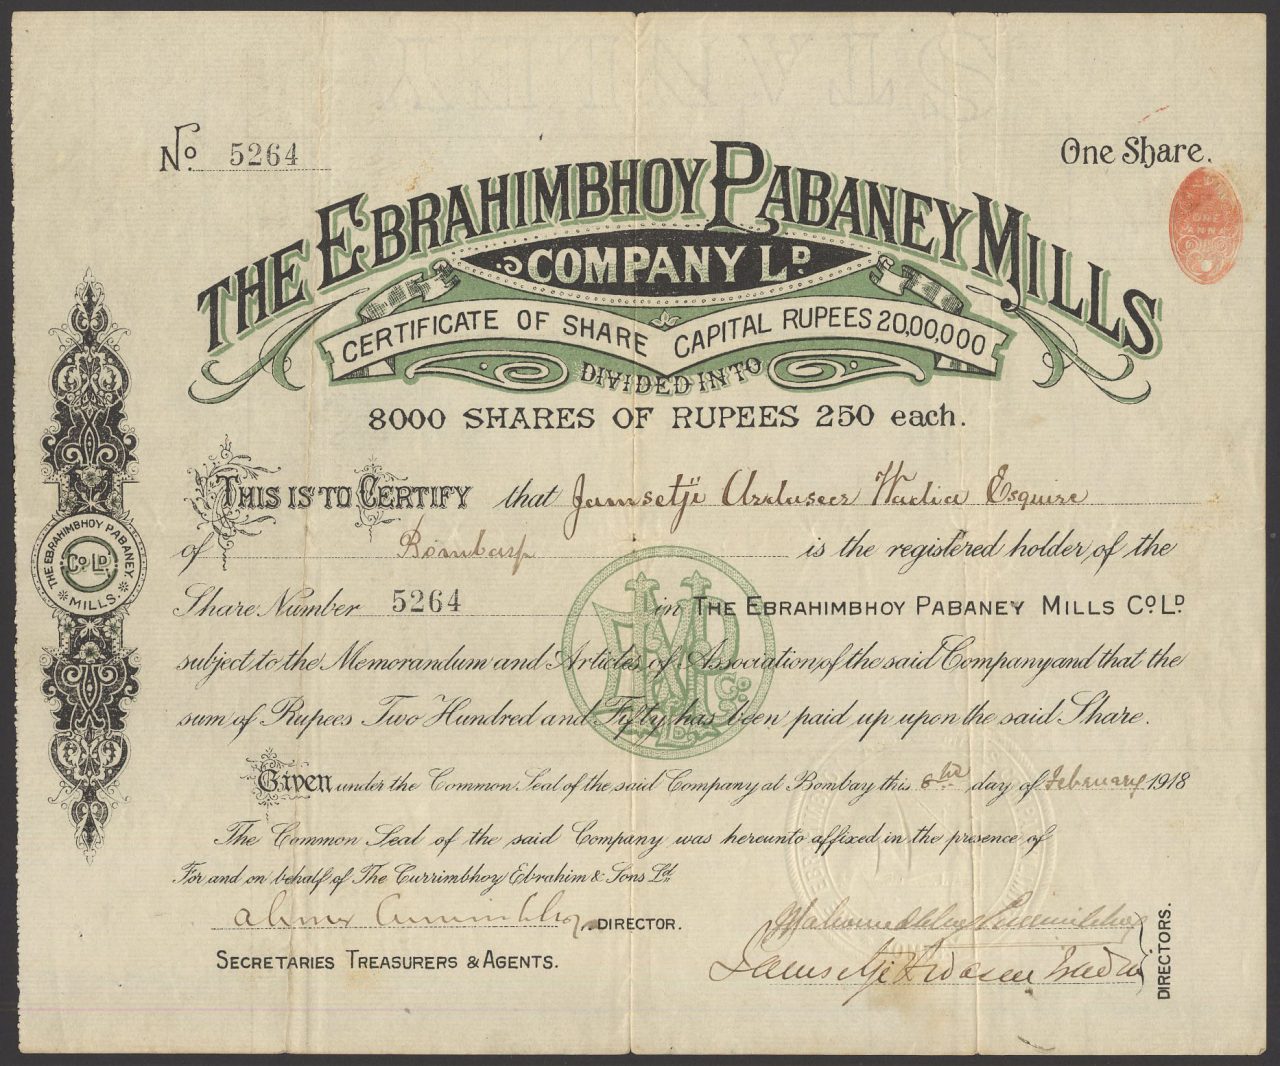 No. 5264
One Share.
THE EBRAHIMBHOY PABANEY MILLS
COMPANY LD.
ONE
ANNA
CERTIFICATE OF SHARE CAPITAL RUPEES 20,00,000
DIVIDED INTO
8000 SHARES OF RUPEES 250 each.
THIS IS TO CERTIFY that Jamsetji Arduseer Wadia Esquire
of Bombay is the registered holder of the
Share Number 5264 in THE EBRAHIMBHOY PABANEY MILLS Co. LD.
subject to the Memorandum and Articles of Association, of the said Company and that the
sum of Rupees Two Hundred and Fifty has been paid up upon the said Share.
THE EBRAHIMBHOY PABANEY
Co. LD.
MILLS.
Given under the Common Seal of the said Company at Bombay this 6th day of February 1918
The Common Seal of the said Company was hereunto affixed in the presence of
For and on behalf of The Currimbhoy Ebrahim & Sons Ld.
Currimbhoy DIRECTOR.
Mahomedbhoy Currimbhoy
Jamsetji Ardaseer Wadia
DIRECTORS.
SECRETARIES TREASURERS & AGENTS.